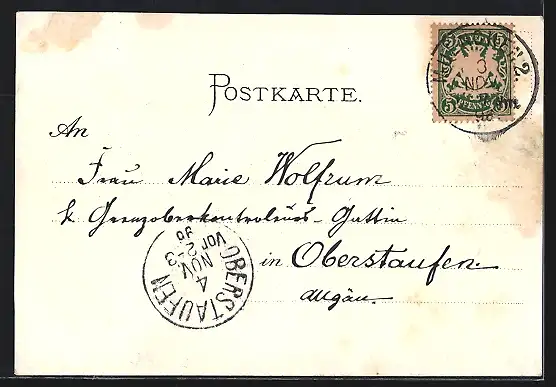 5 5
PFENNIG
5 5
3
NOV
POSTKARTE.
An
Frau Marie Wolfrum
k. Grenzoberkontroleurs-Gattin
in Oberstaufen
Allgäu.
OBERSTAUFEN
4
NOV
VOR 2-3
98